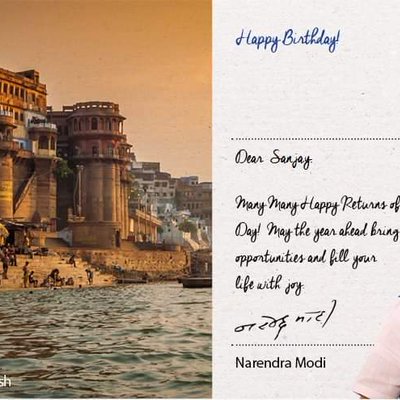 Happy Birthday!
Dear Sanjay
Many Many Happy Returns of
Day! May the year ahead bring
opportunities and fill your
life with joy.
नरेन्द्र मोदी
Narendra Modi
sh